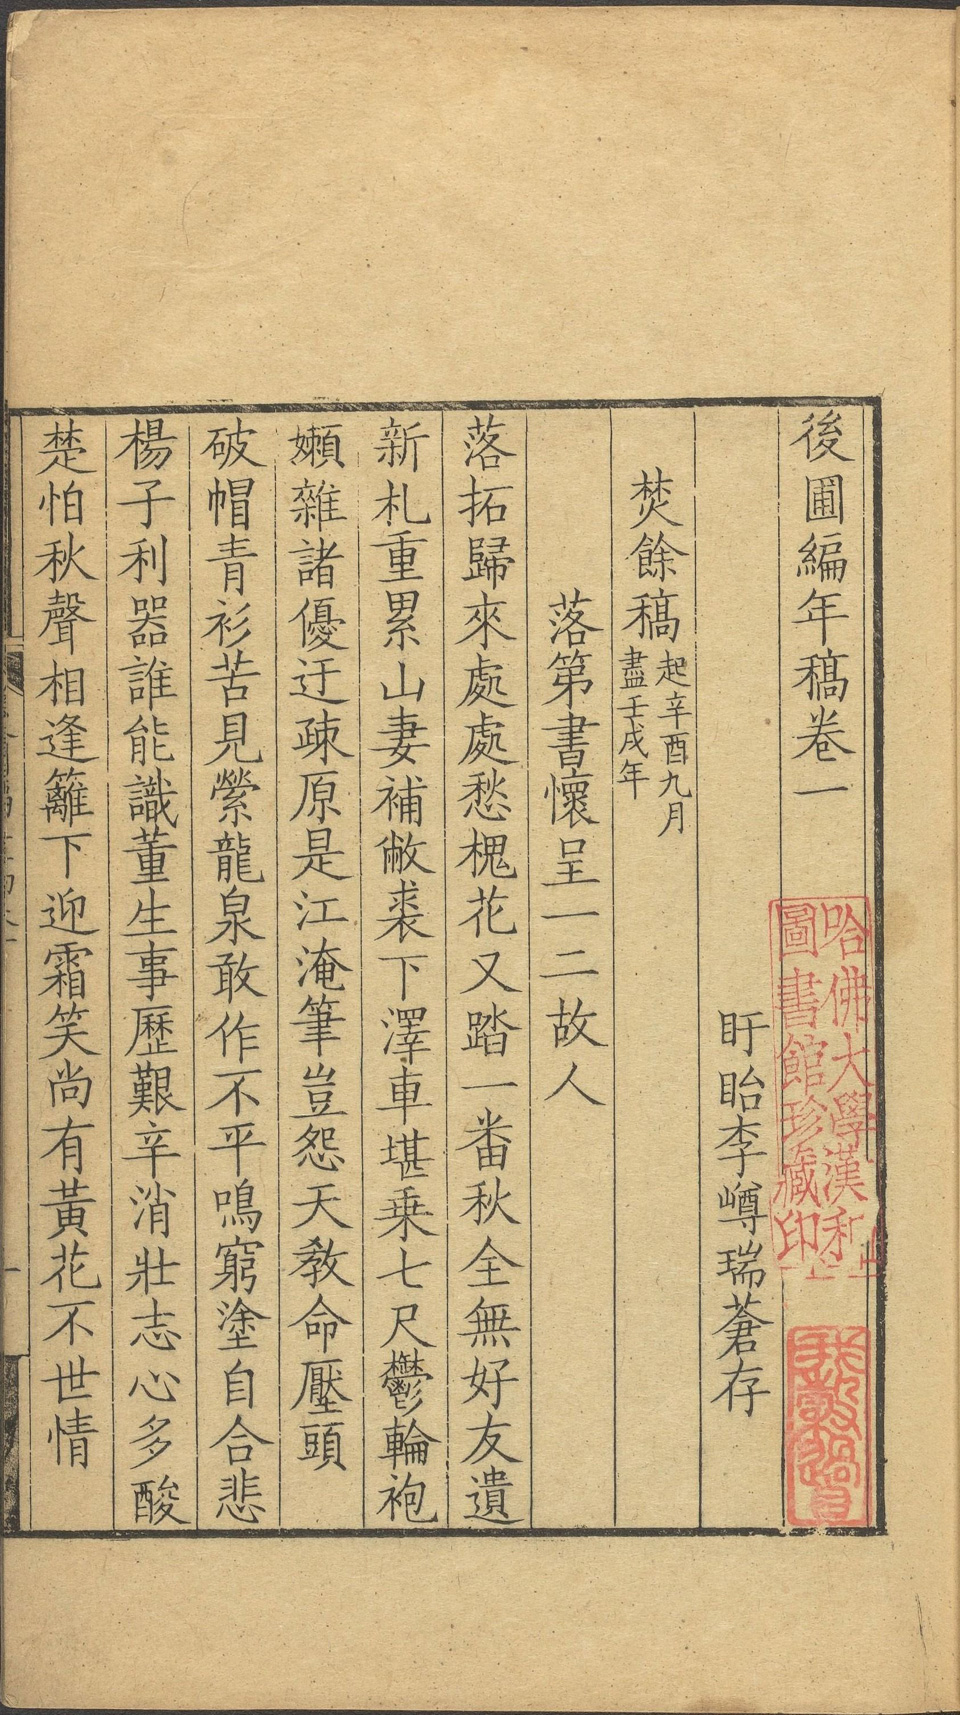 後圃編年稿卷一
盱眙李嶟瑞蒼存
焚餘稿起辛酉九月
盡壬戌年
落第書懷呈一二故人
落拓歸來處處愁槐花又踏一番秋全無好友遺
新札重累山妻補敝裘下澤車堪乘七尺鬱輪袍
嬾雜諸優迂疎原是江淹筆豈怨天教命壓頭
破帽青衫苦見縈龍泉敢作不平鳴窮塗自合悲
楊子利器誰能識董生事歷艱辛消壯志心多酸
楚怕秋聲相逢籬下迎霜笑尚有黃花不世情
哈佛大學漢和
圖書館珍藏印